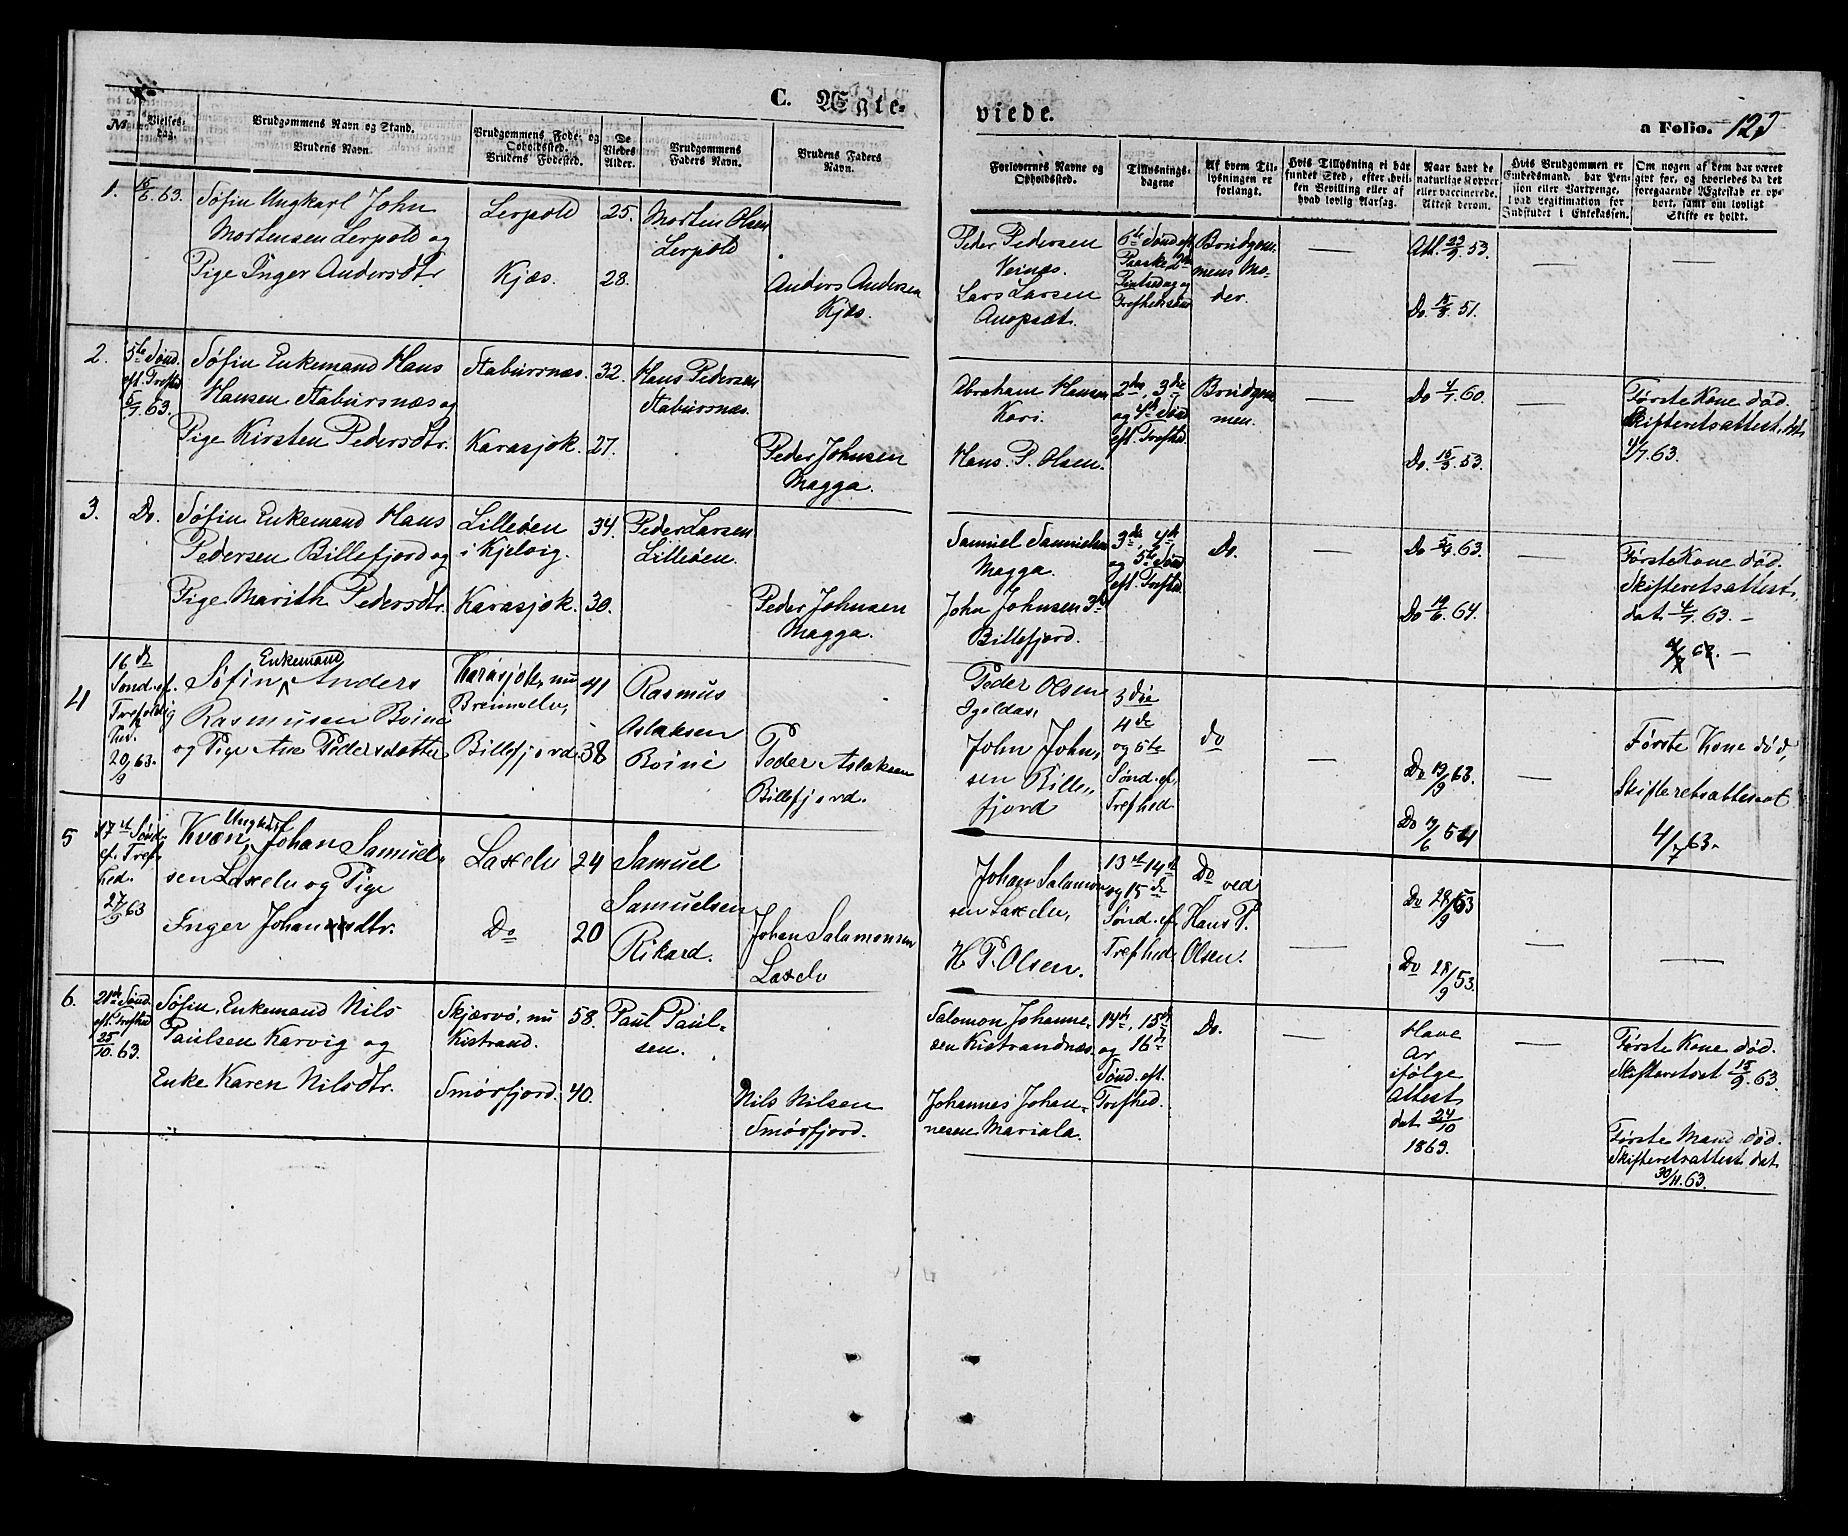 C. Ægte-
viede.
a Folio. 123
No.
Vielses-
dag.
Brudgommens Navn og Stand.
Brudens Navn.
Brudgommens Føde- og
Opholdssted.
Brudens Fødested.
De
Viedes
Alder.
Brudgommens
Faders Navn.
Brudens Faders
Navn.
Forlovernes Navne og
Opholdssted.
Tillysnings-
dagene
Af hvem Til-
lysningen er
forlangt.
Hvis Tillysning ei har
fundet Sted, efter hvil-
ken Bevilling eller af
hvad lovlig Aarsag.
Naar havt de
naturlige Kopper
eller vaccinerede.
Attest derom.
Hvis Brudgommen er
Embedsmand, har Pen-
sion eller Vartpenge,
hvad Legitimation for
Indskudet i Enkekassen.
Om nogen af dem har været
gift før, og hvorledes da det
foregaaende Ægteskab er op-
hørt, samt om lovligt
Skifte er holdt.
1.
15/6.63.
Søfin Ungkarl John
Mortensen Lerpold og
Pige Inger Andersdtr.
Lerpold
Kjæs.
25.
28.
Morten Olsen
Lerpold
Anders Andersen
Kjæs.
Peder Pedersen
Veinæs.
Lars Larsen
Anopsæt.
6te Sønd. eft.
Paaske, 2den
Pintsedag og
Trefhedssønd.
Brudgom-
mens Mo-
der.
—
Att. 22/9.53.
Do. 15/8.51.
—
—
2.
5te Sønd.
eft. Trefhed
5/7.63.
Søfin Enkemand Hans
Hansen Stabursnæs og
Pige Kirsten Pedersdtr.
Stabursnæs.
Karasjok.
32.
27.
Hans Pedersen
Stabursnæs.
Peder Johnsen
Magga.
Abraham Hansen
Kari.
Hans. P. Olsen.
2den, 3die
og 4de Sønd
eft. Trefhed.
Brudgom-
men.
—
Do 4/7.60.
Do. 15/3.53.
—
Første Kone død.
Skifteretsattest dat.
4/7.63.
3.
Do.
Søfin Enkemand Hans
Pedersen Billefjord og
Pige Marith Pedersdtr.
Lilleøen
i Kjelvig.
Karasjok.
34.
30.
Peder Larsen
Lilleøen.
Peder Johnsen
Magga.
Samuel Samuelsen
Magga.
John Johnsen 3die
Billefjord.
3die, 4de
og 5te Sønd
eft. Trefhd.
Do.
—
Do 5/7.63.
Do 19/6.54.
—
Første Kone død.
Skifteretsattest
dat 4/7.63.—
4
16de
Sønd. ef.
Trefoldig
hed.
20/9 63.
Enkemand
Søfin Anders
Rasmusen Boine
og Pige Ane Pedersdatter
Karasjok, nu
Brennelv,
Billefjord.
41
38
Rasmus
Aslaksen
Boini
Peder Aslaksen
Billefjord.
Peder Olsen
Igeldas,
John John-
sen Bille-
fjord
3die
4de
og 5te
Sønd. ef.
Trefhed
do
—
Do 19/9 63.
Do 19/6 54
—
Første Kone død,
Skifteretsattest
4/7 63.
5
17de Sønd.
ef. Tref-
hed.
27/9 63
Ungkarl
Kvæn, Johan Samuel-
sen Laxelv og Pige
Inger Johansdtr.
Laxelv
Do
24
20
Samuel
Samuelsen
Rikard.
Johan Salamonsen
Laxelv
Johan Salamon-
sen Laxelv,
H P. Olsen.
13de 14de
og 15de
Sønd. ef.
Trefhed
Do
ved
Hans P.
Olsen.
—
Do 28/9 53
Do 28/9 53.
—
—
6.
21de Sønd.
eft. Trefhed
25/10.63.
Søfin, Enkemand Nils
Paulsen Karvig og
Enke Karen Nilsdtr.
Skjærvø, nu
Kistrand.
Smørfjord.
58.
40.
Paul Paul-
sen.
Nils Nilsen
Smørfjord.
Salomon Johanne-
sen Kistrandnæs.
Johannes Johan-
nesen Mariala.
14de, 15de
og 16de
Sønd. eft.
Trefhed.
Do.
—
Have
Ar
ifølge
Attest
dat 24/10
1863.
—
Første Kone død.
Skifteretsat 15/9.63.
Første Mand død.
Skifteretsattest dat
30/11.63.